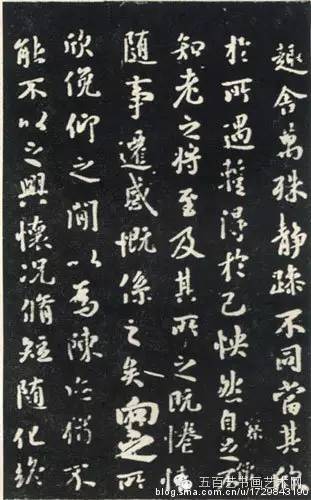 趣舍萬殊靜躁不同當其欣
於所遇蹔得於己怏然自足不
察
知老之將至及其所之既惓情
隨事遷感慨係之矣向之所
欣俛仰之間以為陳迹猶不
能不以之興懷況脩短隨化終
五百艺书画艺术网
blog.sina.com.cn/u/1729843190